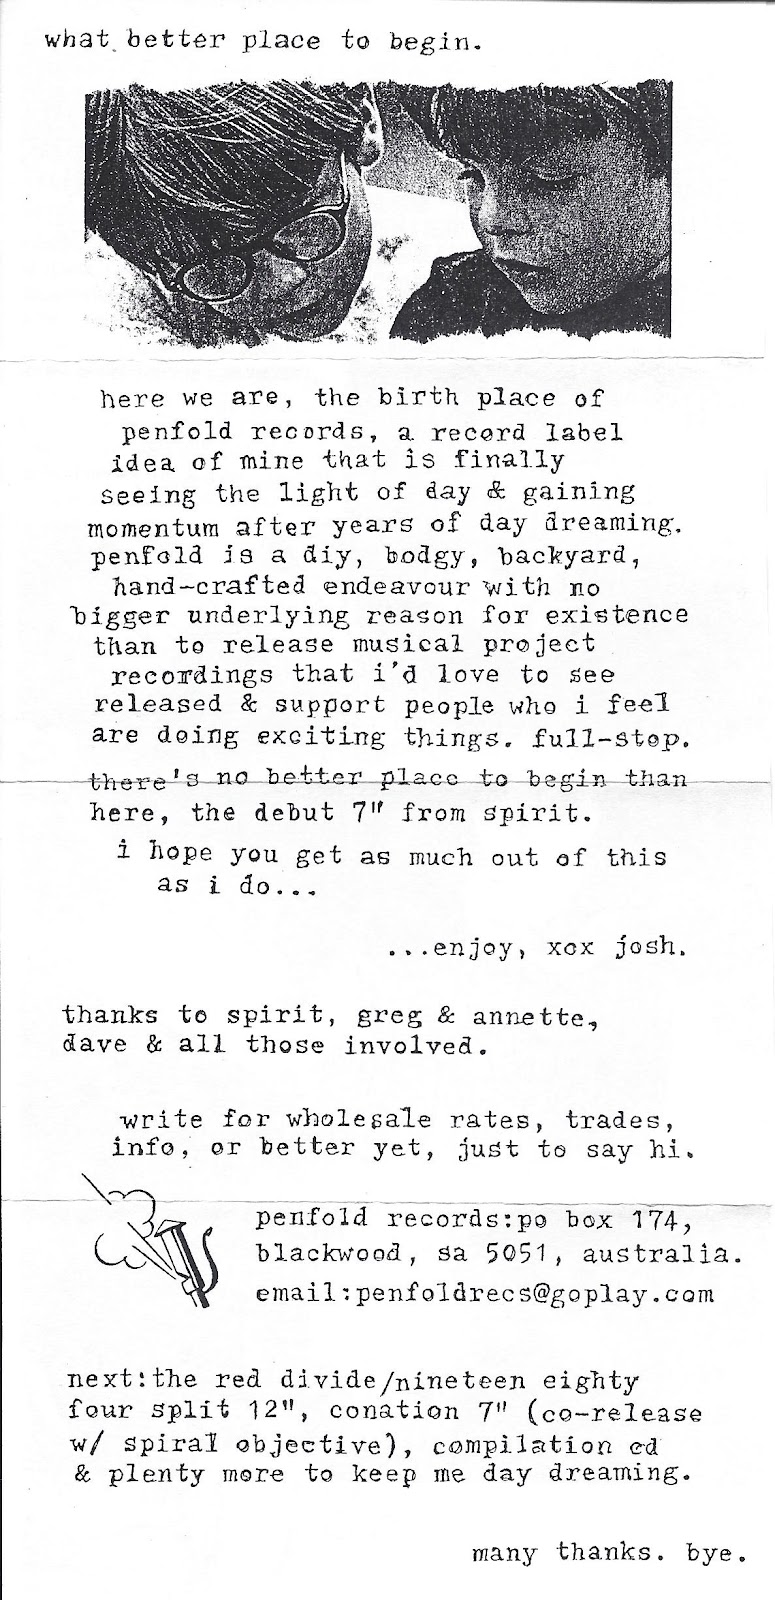 what better place to begin.
here we are, the birth place of
penfold records, a record label
idea of mine that is finally
seeing the light of day & gaining
momentum after years of day dreaming.
penfold is a diy, bodgy, backyard,
hand-crafted endeavour with no
bigger underlying reason for existence
than to release musical project
recordings that i'd love to see
released & support people who i feel
are doing exciting things. full-stop.
there's no better place to begin than
here, the debut 7" from spirit.
i hope you get as much out of this
as i do...
...enjoy, xox josh.
thanks to spirit, greg & annette,
dave & all those involved.
write for wholesale rates, trades,
info, or better yet, just to say hi.
penfold records:po box 174,
blackwood, sa 5051, australia.
email:penfoldrecs@goplay.com
next:the red divide/nineteen eighty
four split 12", conation 7" (co-release
w/ spiral objective), compilation cd
& plenty more to keep me day dreaming.
many thanks. bye.